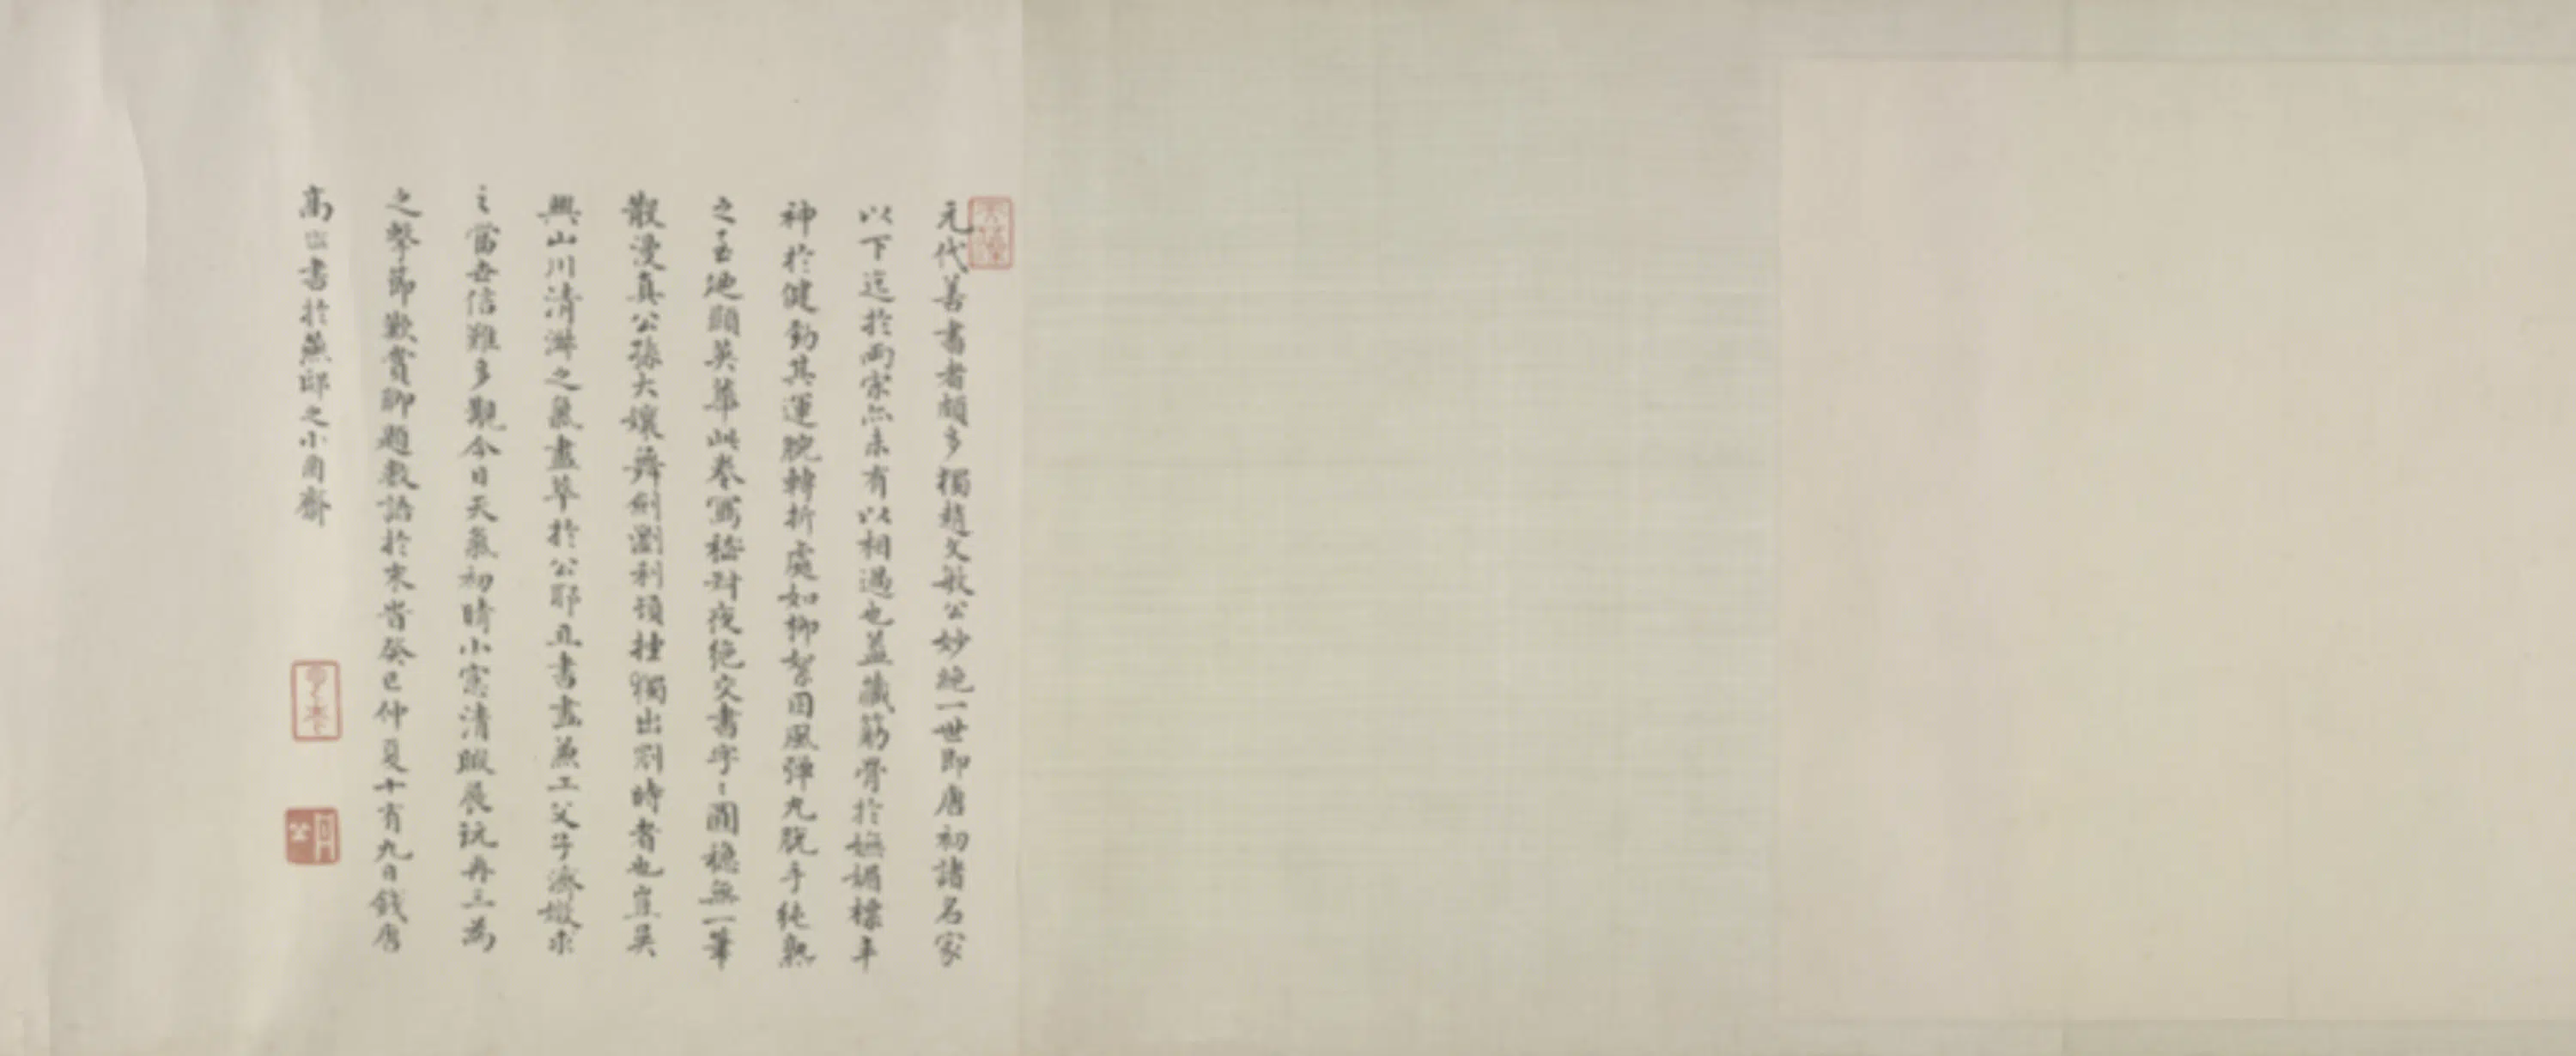 元代善書者頗多獨趙文敏公妙絶一世即唐初諸名家
以下迄於兩宋亦未有以相過也蓋藏筋骨於嫵媚標丰
神於健勁其運腕轉折處如柳絮因風彈丸脫手純熟
之至迤顯英華此卷寫嵇叔夜絶交書字〻圓穩無一筆
散漫真公孫大孃舞劍瀏利頓挫獨出冠時者也豈吴
興山川清淑之氣盡萃於公耶且書畫兼工父子濟媺求
之當世信難多觀今日天氣初晴小窓清暇展玩再三為
之擊節歎賞聊題數語於末旹癸巳仲夏十有九日錢唐
高 書於燕邸之小 齋